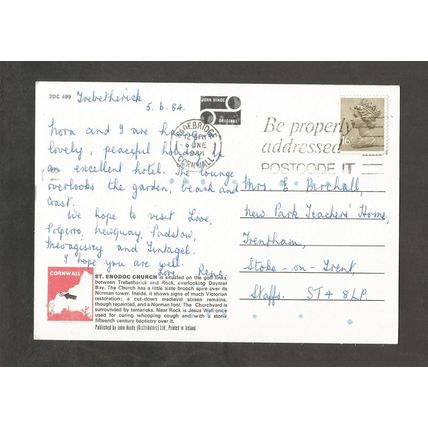 2DC 499
Trebetherick
5.6.84.
Nora and I are having a
lovely, peaceful holiday in
an excellent hotel. The lounge
overlooks the garden, beach and
coast.
We hope to visit Looe,
Polperro, Newquay, Padstow,
Mevagissey and Tintagel.
I hope you are well.
Love, Rene
JOHN HINDE
ORIGINAL
WADEBRIDGE
12 15 PM
6 JNE
CORNWALL
Be properly
addressed
POSTCODE IT
16
Mrs. E. Birchall,
New Park Teachers' Home,
Trentham,
Stoke-on-Trent,
Staffs. ST4 8LP
CORNWALL
ST. ENODOC CHURCH is situated on the golf links
between Trebetherick and Rock, overlooking Daymer
Bay. The Church has a little slate broach spire over its
Norman tower. Inside, it shows signs of much Victorian
restoration; a cut-down medieval screen remains,
though repainted, and a Norman font. The Churchyard is
surrounded by tamarisks. Near Rock is Jesus Well once
used for curing whooping cough and with a stone
fifteenth century baptistry over it.
Published by John Hinde (Distributors) Ltd., Printed in Ireland.